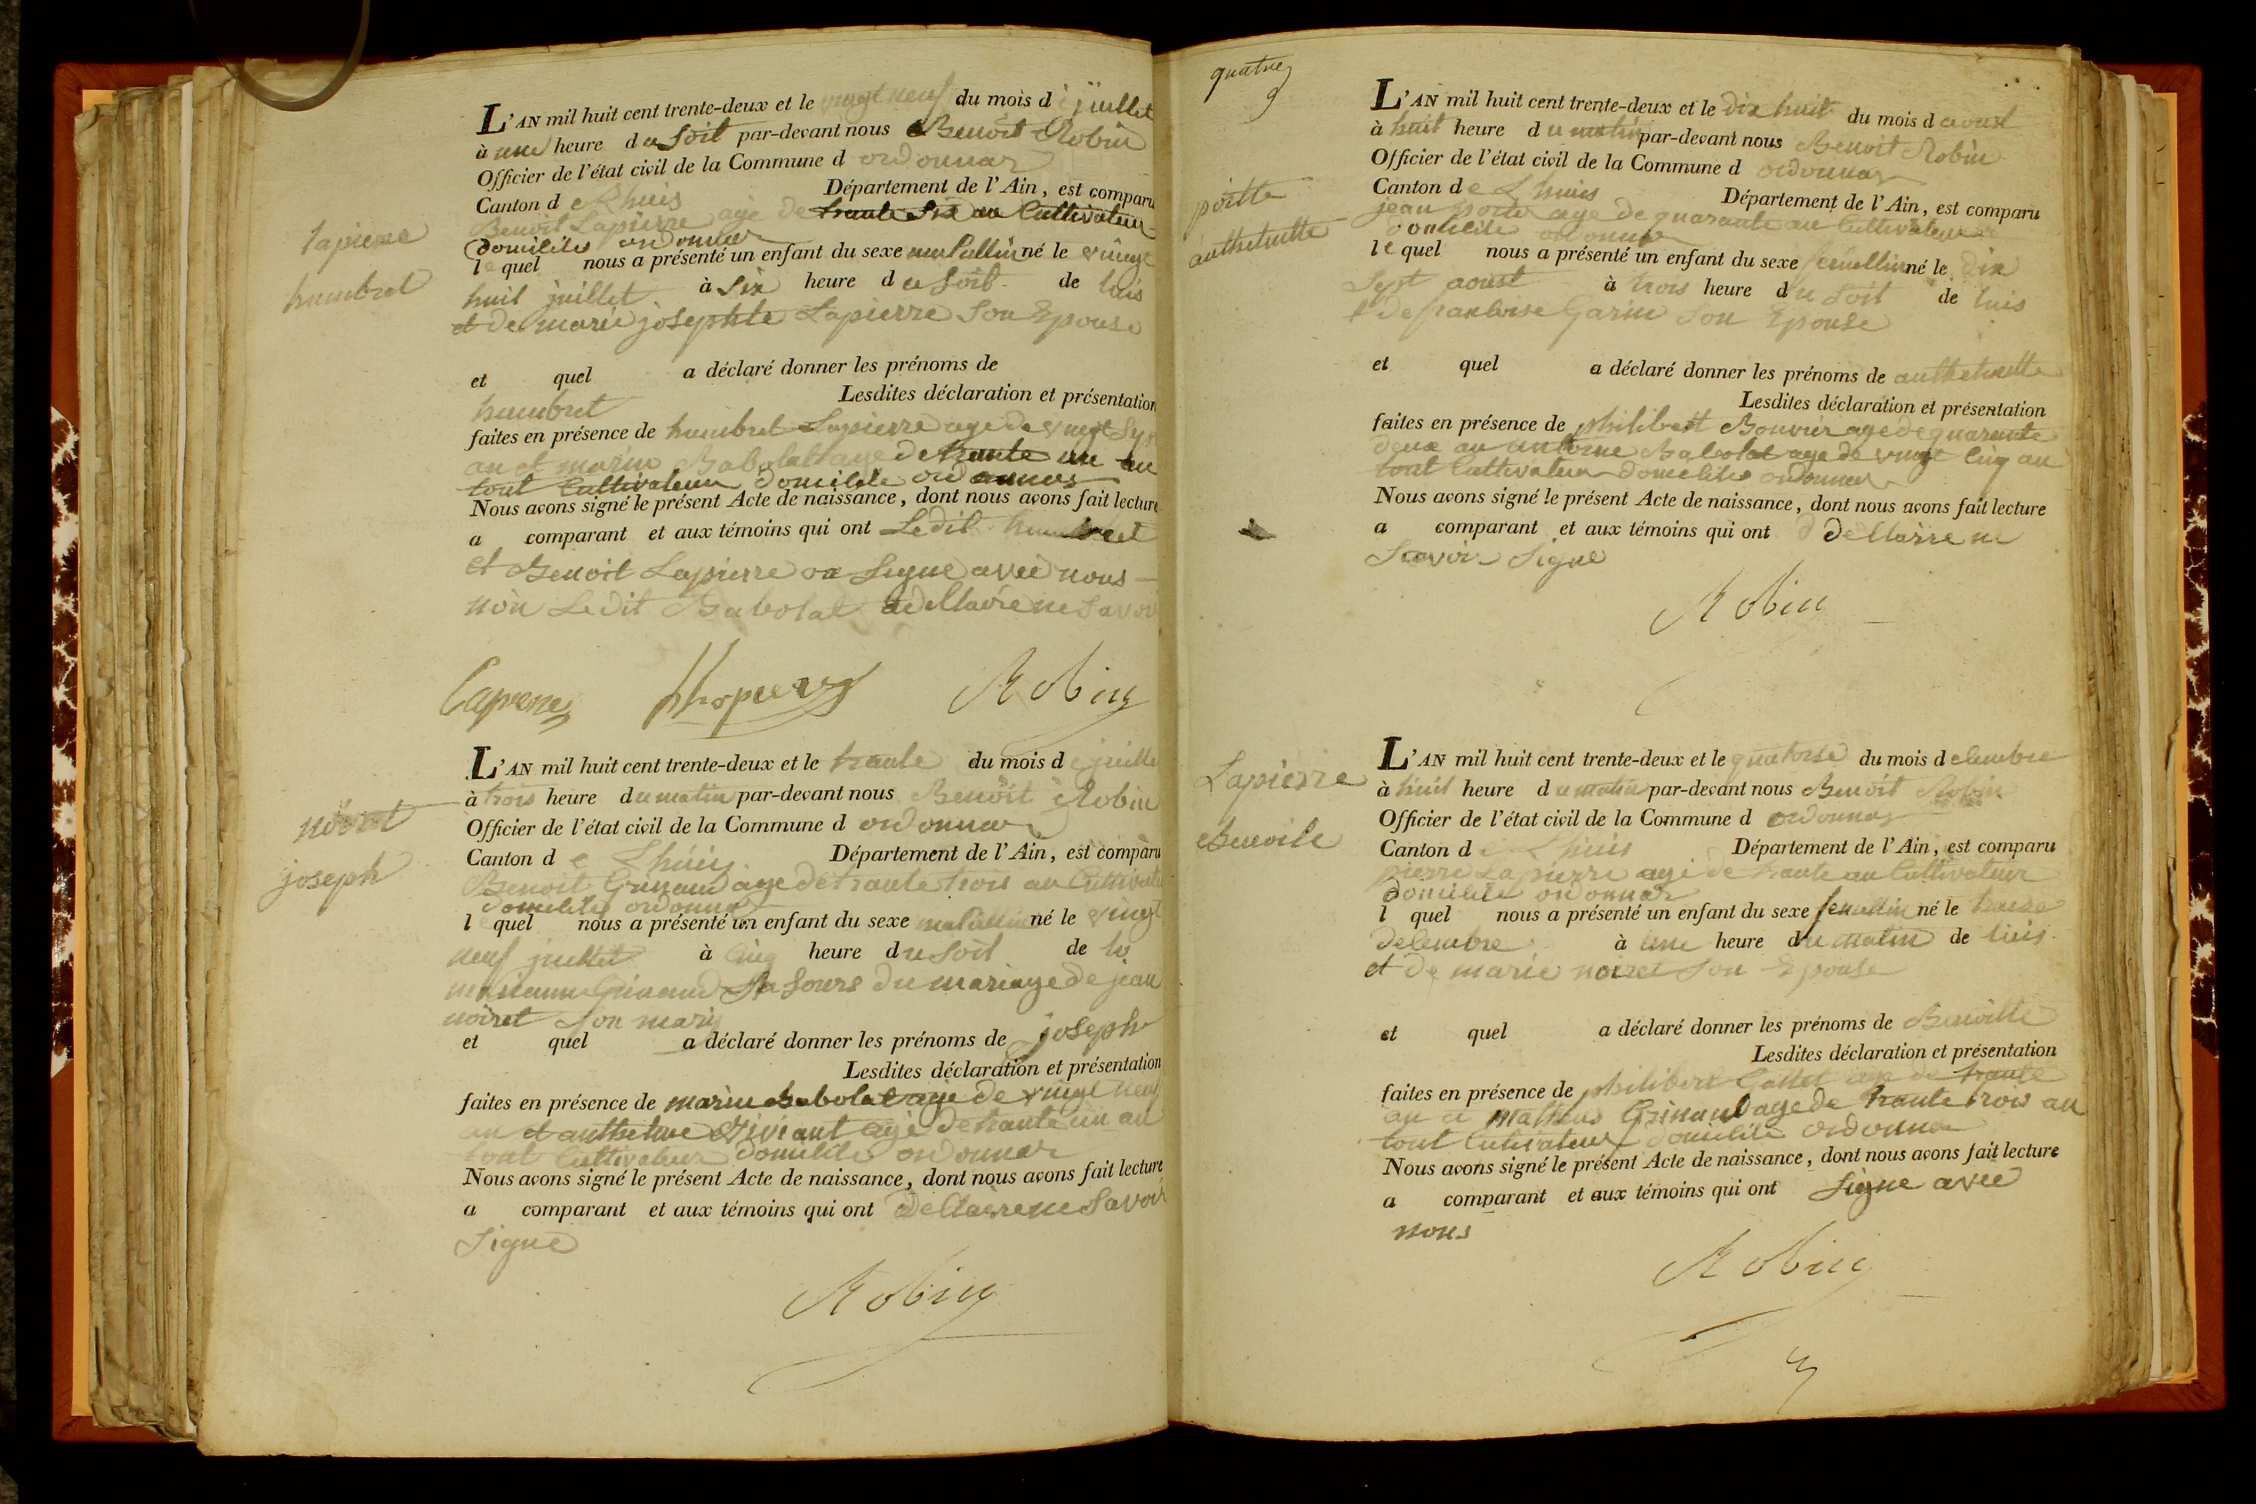 lapierre
humbret
L'AN mil huit cent trente-deux et le vingt neuf du mois d e juillet
à une heure du Soit par-devant nous Benoit Robin
Officier de l'état civil de la Commune d ordonnas
Canton d e Lhuis Département de l'Ain, est comparu
Benoit Lapierre age de trante Six an Cultivateur
domicilies ordonnas
le quel nous a présenté un enfant du sexe masCullin né le vingt
huit juillet à Six heure du Soit de luis
et de marie josephte Lapierre Son Epouse
et quel a déclaré donner les prénoms de
Lesdites déclaration et présentation
humbret
faites en présence de humbret Lapierre age de vingt
an et marin Babolat age de trante un an
tout Cultivateur domicilie ordonnas
Nous avons signé le présent Acte de naissance, dont nous avons fait lecture
a comparant et aux témoins qui ont Ledit humbret
et Benoit Lapierre on Signe avec nous
non Ledit Babolat a dellairé ne Savoir
Lapierre Robin
noiret
joseph
L'AN mil huit cent trente-deux et le trante du mois d e juillet
à trois heure du matin par-devant nous Benoit Robin
Officier de l'état civil de la Commune d ordonnas
Canton d e Lhuis Département de l'Ain, est comparu
Benoit Grinand age de trante trois an Cultivate
domicilies ordonnas
l quel nous a présenté un enfant du sexe masCullin né le vingt
neuf juillet à Cinq heure du Soit de lo
Grinand Sa Soure du mariage de jean
noiret Son mari
et quel a déclaré donner les prénoms de joseph
Lesdites déclaration et présentation
faites en présence de marin Babolat age de vingt neuf
an et anthelme Vivant age de trante un an
tout Cultivateur domicilie ordonnas
Nous avons signé le présent Acte de naissance, dont nous avons fait lecture
a comparant et aux témoins qui ont dellairé ne Savoir
Signe
Robin
quatre
poitte
anthelmette
L'AN mil huit cent trente-deux et le dix huit du mois d aoust
à huit heure du matin par-devant nous Benoit Robin
Officier de l'état civil de la Commune d ordonnas
Canton de Lhuis Département de l'Ain, est comparu
jean poite age de quarante an Cultivateur
domicilie ordonnas
le quel nous a présenté un enfant du sexe femellin né le dix
Sept aoust à trois heure du Soit de luis
de franboise Garin Son Epouse
et quel a déclaré donner les prénoms de anthelmette
Lesdites déclaration et présentation
faites en présence de philibert Bouvier age de quarante
deux an antoine Babolat age de vingt Cinq an
tout Cultivateur domicilies ordonnas
Nous avons signé le présent Acte de naissance, dont nous avons fait lecture
a comparant et aux témoins qui ont dellairé ne
Scavoir Signe
Robin
Lapierre
Benoite
L'AN mil huit cent trente-deux et le quatorse du mois d elembre
à huit heure du matin par-devant nous Benoit Robin
Officier de l'état civil de la Commune d ordonnas
Canton d e Lhuis Département de l'Ain, est comparu
pierre Lapierre age de trante an Cultivateur
domicilie ordonnas
l quel nous a présenté un enfant du sexe femellin né le traise
delembre à une heure du matin de luis
et de marie noiret Son Epouse
et quel a déclaré donner les prénoms de Benoitte
Lesdites déclaration et présentation
faites en présence de philibert Gallet age de trante
an et Grinand age de trante trois an
tout Cultivateur domicilie ordonnas
Nous avons signé le présent Acte de naissance, dont nous avons fait lecture
a comparant et aux témoins qui ont Signe avec
nous
Robin